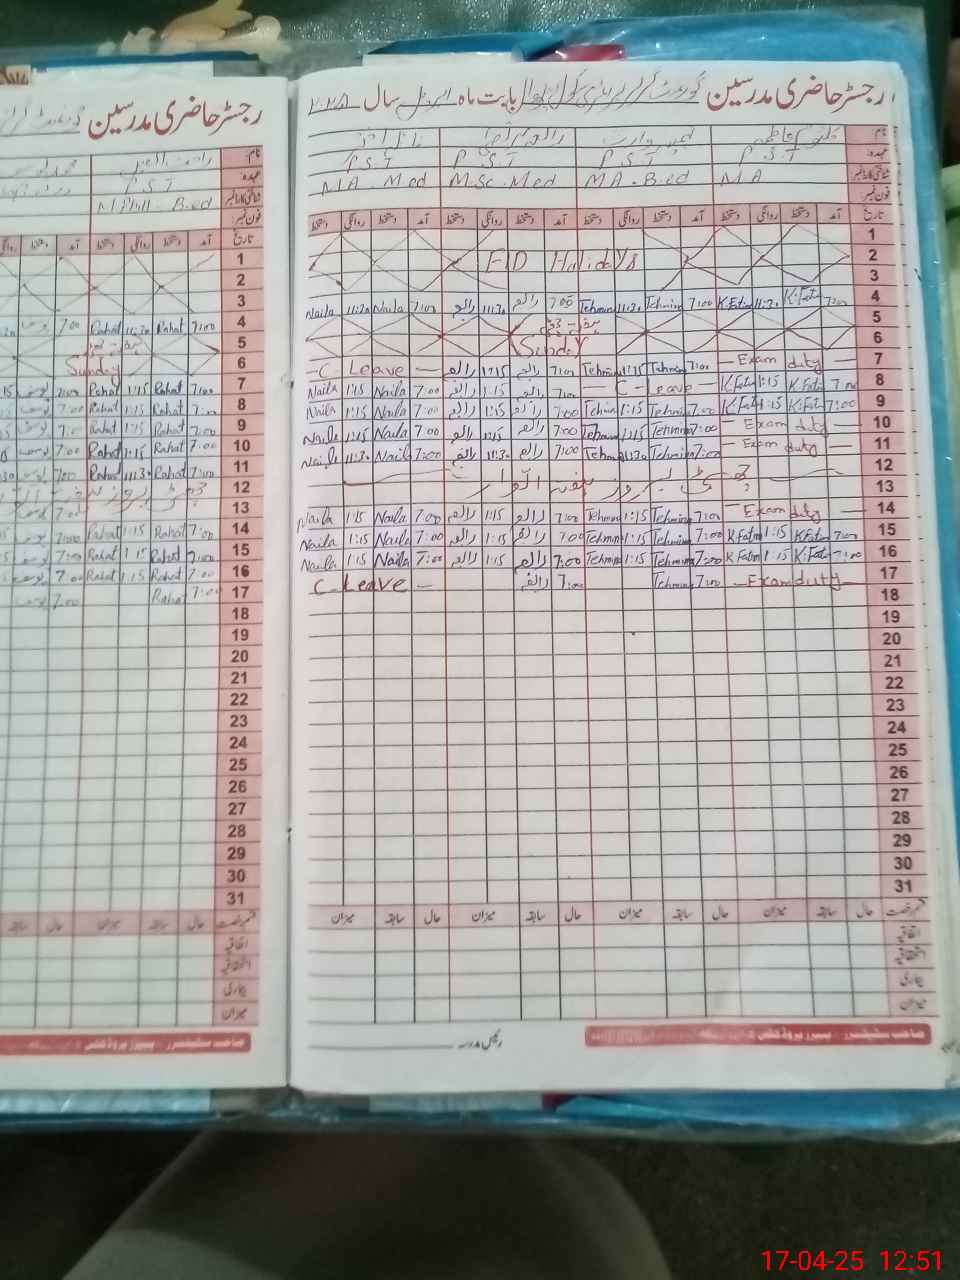 رجسٹر حاضری مدرسین
بابت ماہ اپریل سال ۲۰۲۵
نام
P.S.T P.S.T P.S.T P.S.T عہدہ
M.A. M.ed M.Sc. M.ed M.A. B.ed M.A
فون نمبر
تاریخ آمد دستخط روانگی دستخط آمد دستخط روانگی دستخط آمد دستخط روانگی دستخط آمد دستخط روانگی دستخط
1
EID Holidays 2
3
Naila 11:30 Naila 7:00 رائم 11:30 رائم 7:00 Tehmina 11:30 Tehmina 7:00 K.Fatima 11:30 K.Fatima 7:00 4
5
(Sunday 6
- C- Leave - رائم 1:15 رائم 7:00 Tehmina 1:15 Tehmina 7:00 - Exam duty - 7
Naila 1:15 Naila 7:00 رائم 1:15 رائم 7:00 - C - Leave - K.Fatm 1:15 K.Fatm 7:00 8
Naila 1:15 Naila 7:00 رائم 1:15 رائم 7:00 Tehmina 1:15 Tehmina 7:00 K.Fatm 1:15 K.Fatm 7:00 9
Naila 1:15 Naila 7:00 رائم 1:15 رائم 7:00 Tehmina 1:15 Tehmina 7:00 - Exam duty - 10
Naila 11:30 Naila 7:00 رائم 11:30 رائم 7:00 Tehmina 11:30 Tehmina 7:00 - Exam duty - 11
12
چھٹی بروز ہفتہ اتوار 13
Naila 1:15 Naila 7:00 رائم 1:15 رائم 7:00 Tehmina 1:15 Tehmina 7:00 - Exam duty - 14
Naila 1:15 Naila 7:00 رائم 1:15 رائم 7:00 Tehmina 1:15 Tehmina 7:00 K.Fatm 1:15 K.Fatm 7:00 15
Naila 1:15 Naila 7:00 رائم 1:15 رائم 7:00 Tehmina 1:15 Tehmina 7:00 K.Fatm 1:15 K.Fatm 7:00 16
C. Leave - رائم 7:00 Tehmina 7:00 - Exam duty - 17
18
19
20
21
22
23
24
25
26
27
28
29
30
31
قسم رخصت حال سابقہ میزان حال سابقہ میزان حال سابقہ میزان حال سابقہ میزان
اتفاقیہ
استحقاقیہ
بیماری
میزان
رئیس مدرسہ
رجسٹر حاضری مدرسین
نام
P.S.T عہدہ
M.Phill - B.ed
فون نمبر
تاریخ آمد دستخط روانگی دستخط آمد دستخط روانگی
1
2
3
7:00 Rahat 11:30 Rahat 7:00 4
5
Sunday 6
یوسف 7:00 Rahat 1:15 Rahat 7:00 7
یوسف 7:00 Rahat 1:15 Rahat 7:00 8
یوسف 7:00 Rahat 1:15 Rahat 7:00 9
یوسف 7:00 Rahat 1:15 Rahat 7:00 10
یوسف 7:00 Rahat 11:30 Rahat 7:00 11
چھٹی بروز ہفتہ 12
13
یوسف 7:00 Rahat 1:15 Rahat 7:00 14
یوسف 7:00 Rahat 1:15 Rahat 7:00 15
یوسف 7:00 Rahat 1:15 Rahat 7:00 16
یوسف 7:00 Rahat 7:00 17
18
19
20
21
22
23
24
25
26
27
28
29
30
31
قسم رخصت حال سابقہ میزان حال سابقہ
اتفاقیہ
استحقاقیہ
بیماری
میزان
17-04-25 12:51